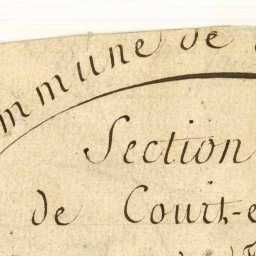 mmune de
Section
de Court-e